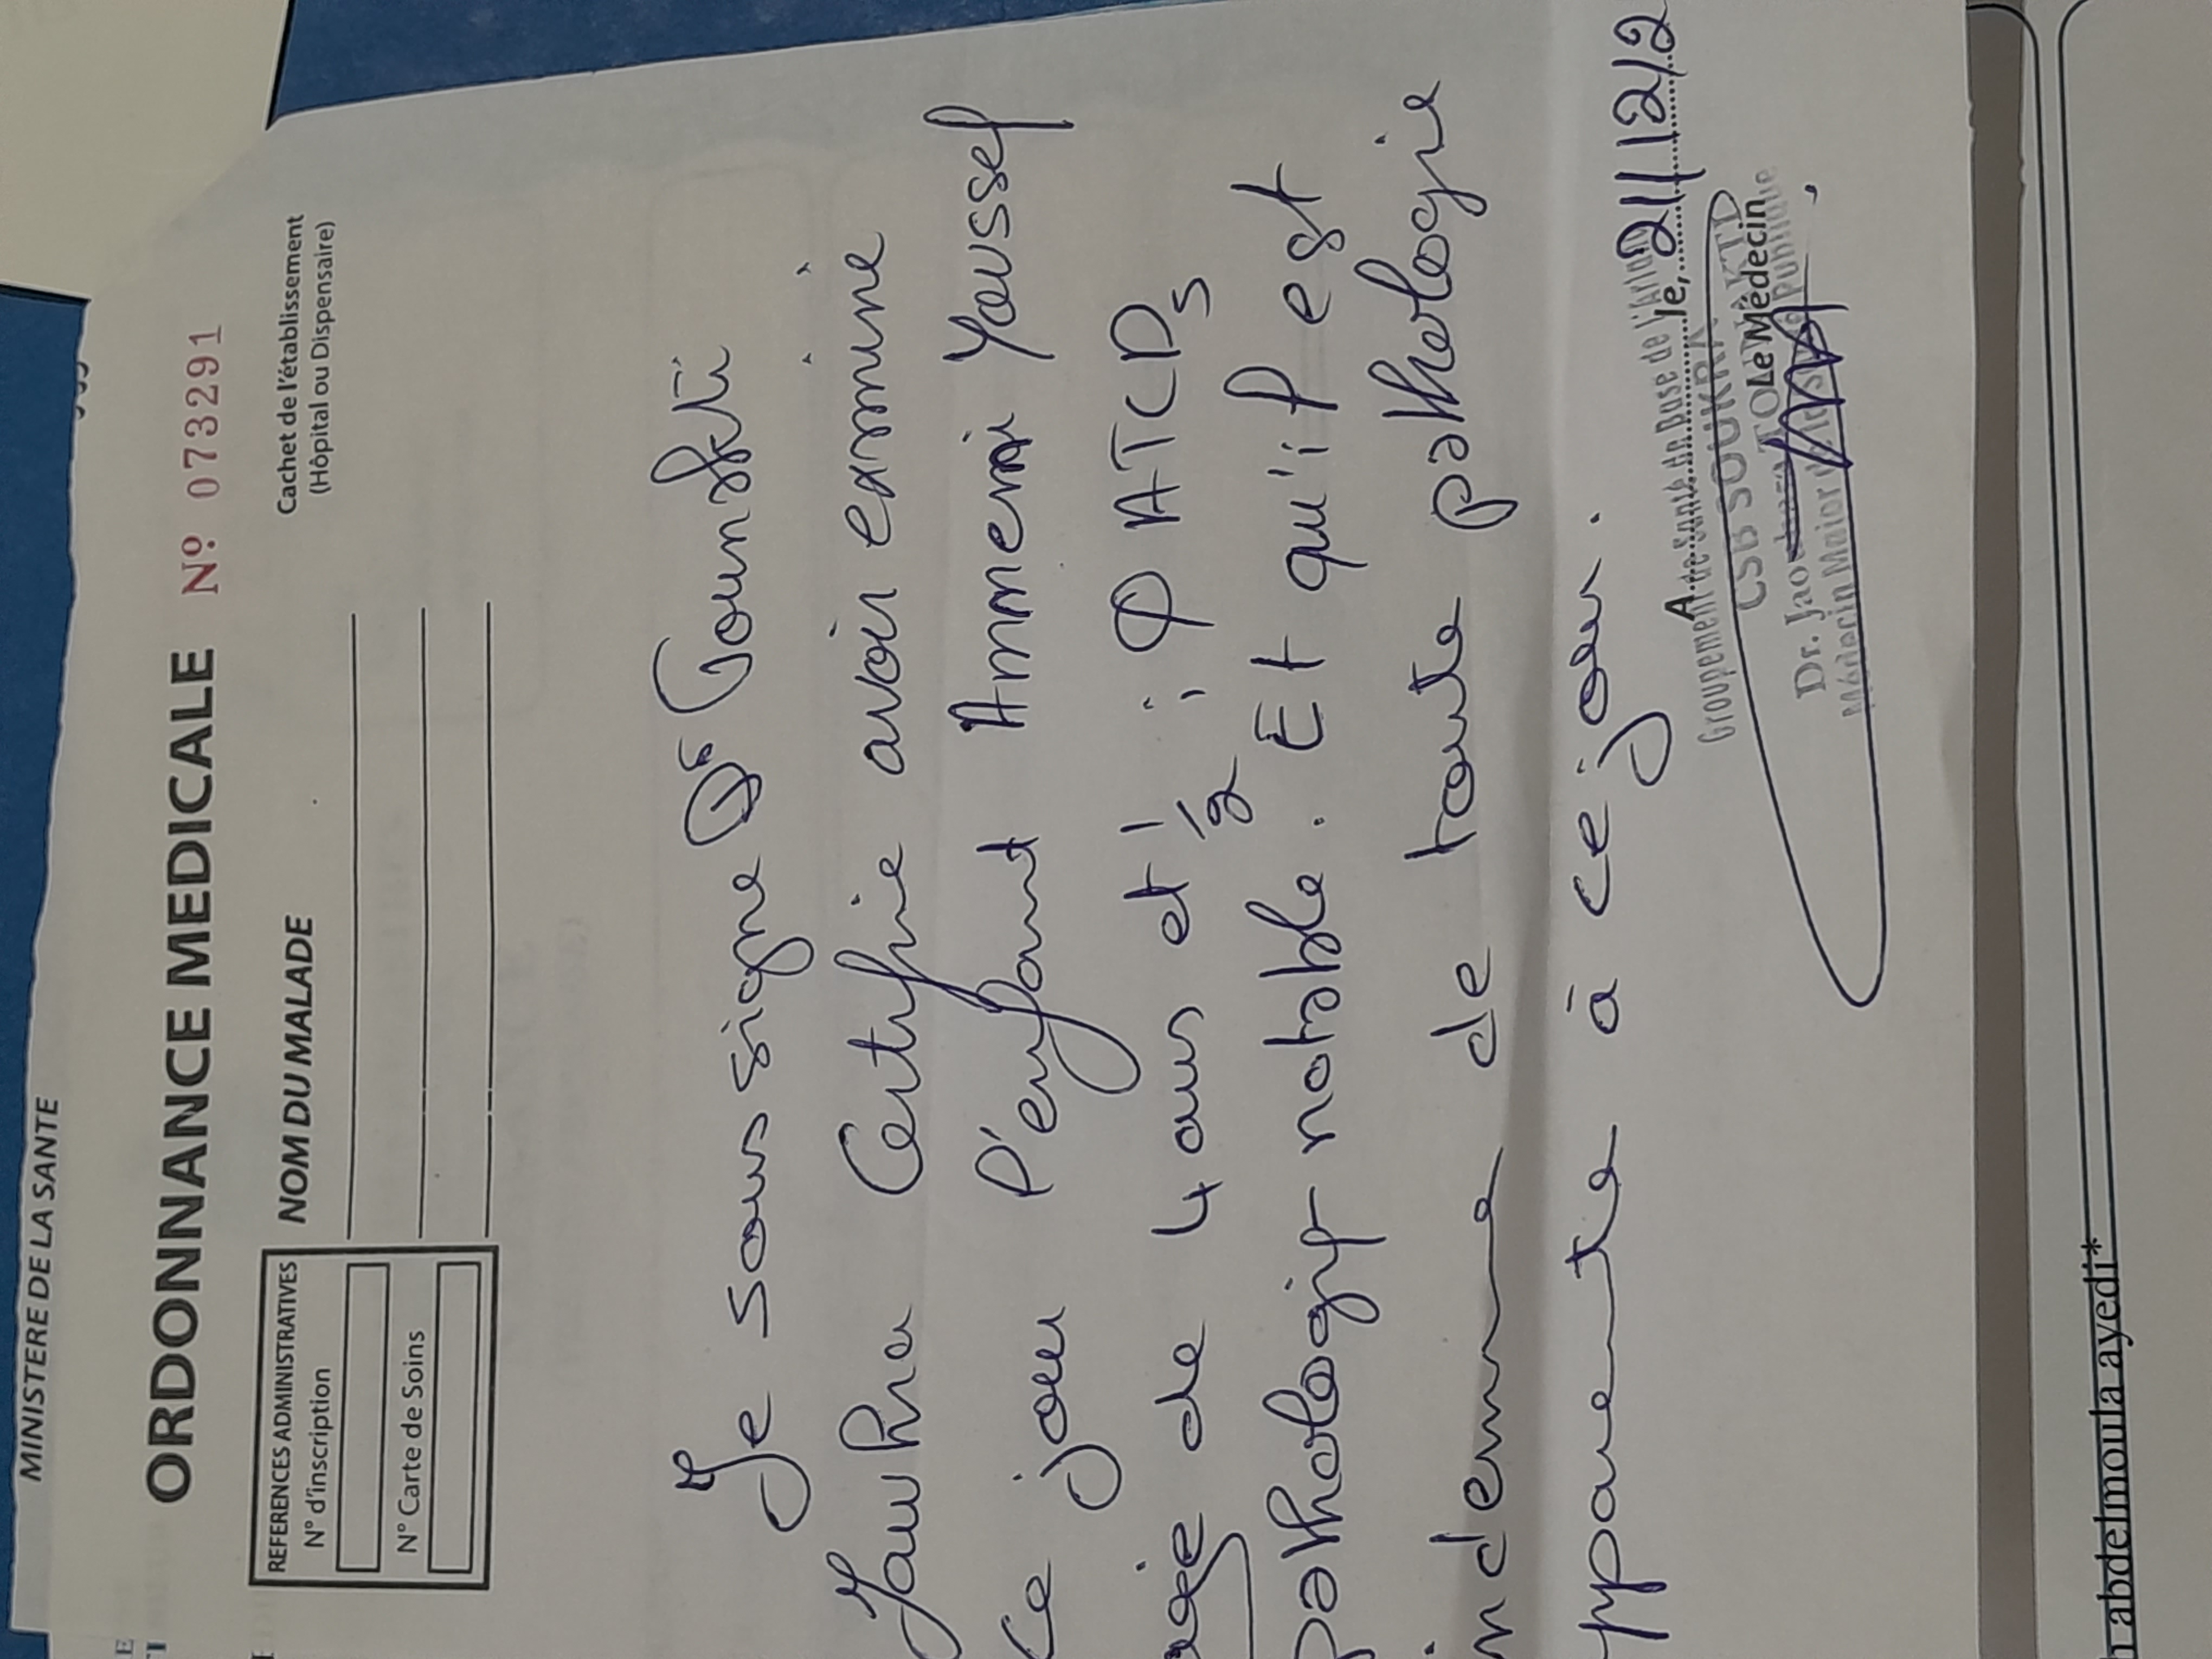 MINISTERE DE LA SANTE
ORDONNANCE MEDICALE Nº 073291
REFERENCES ADMINISTRATIVES
N° d'inscription
N° Carte de Soins
NOM DU MALADE
Cachet de l'établissement
(Hôpital ou Dispensaire)
Je sous signe Dr Tounekti
Jaouhar Certifie avoir examine
Ce jour l'enfant Ammeni Youssef
agé de 4 ans et 1/2 ; φ ATCDs
pathologiq notable. Et qu'il est
indemne de toute pathologie
apparente à ce jour.
A le, 21/12/2
Groupement de Santé de Base de l'Ariana
CSB SOUKRA
Le Médecin
Dr.
Médecin Major Publique
abdelmoula ayedi*